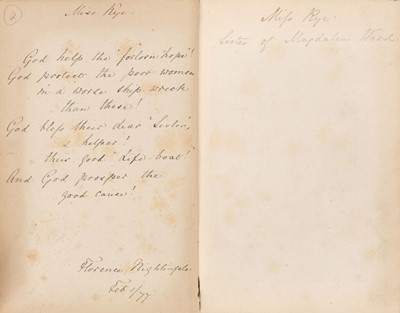 2
Miss Rye.
God help the "forlorn hope"!
God protect the poor women
in a worse ship wreck
than these!
God bless their dear "Sister",
& helper!
their good "Life-boat"!
And God prosper the
good cause!
Florence Nightingale
Feb 1/77
Miss Rye.
Sister of Magdalen Ward